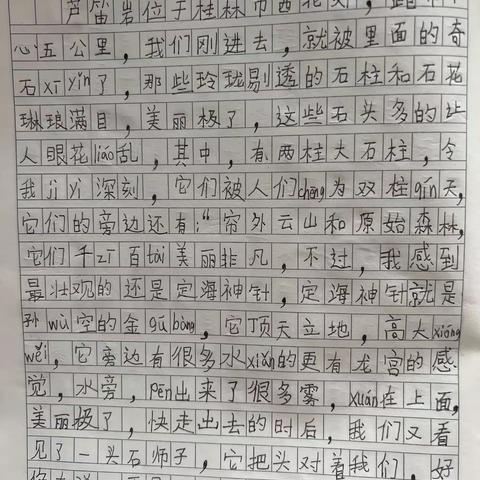 芦笛岩位于桂林市西北
心五公里，我们刚进去，就被里面的奇
石xī yǐn了，那些玲珑剔透的石柱和石花
琳琅满目，美丽极了，这些石头多的让
人眼花liáo乱，其中，有两柱大石柱，令
我jì yì深刻，它们被人们chēng为双柱qín天，
它们的旁边还有：“帘外云山和原始森林，
它们千zī百tài美丽非凡，不过，我感到
最壮观的还是定海神针，定海神针就是
孙wù空的金gū bàng，它顶天立地，高大xióng
wěi，它旁边有很多水xiàn的更有龙宫的感
觉，水旁，pēn出来了很多雾，xuán在上面，
美丽极了，快走出去的时后，我们又看
见了一头石师子，它把头对着我们，好